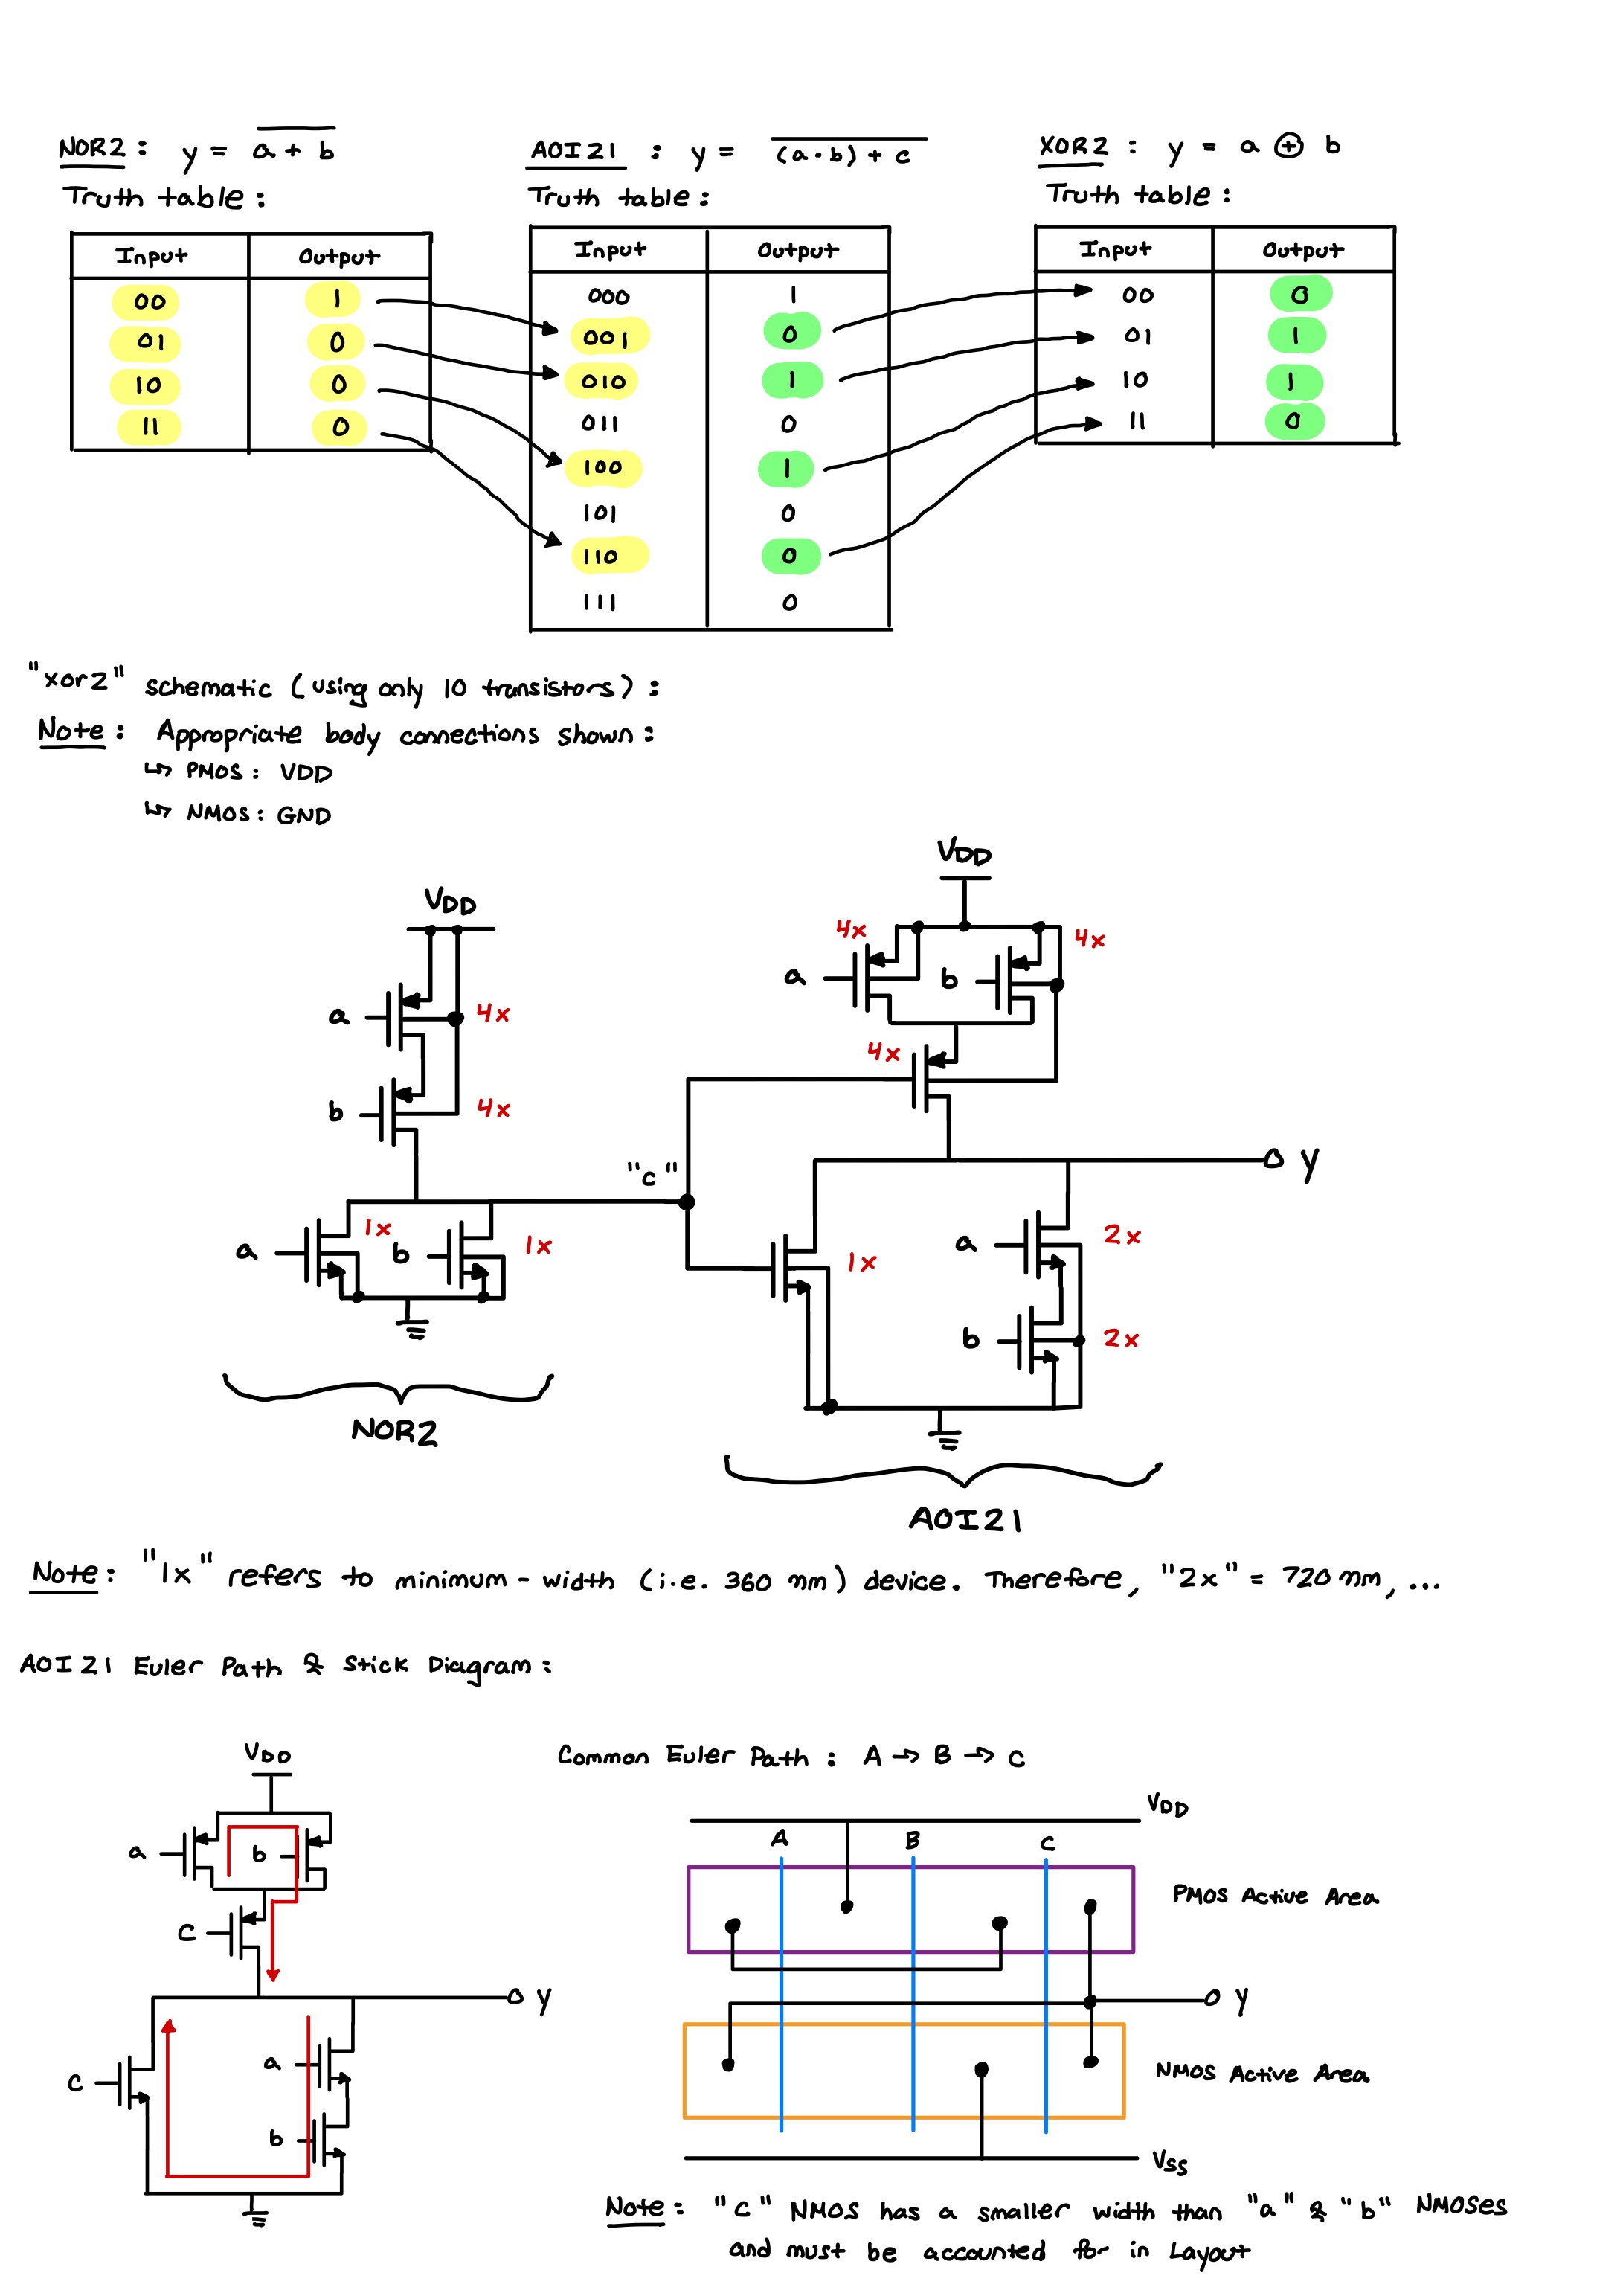 NOR2 : y = a + b
Truth table :
Input Output
00 1
01 0
10 0
11 0
AOI21 : y = (a · b) + c
Truth table :
Input Output
000 1
001 0
010 1
011 0
100 1
101 0
110 0
111 0
XOR2 : y = a ⊕ b
Truth table :
Input Output
00 0
01 1
10 1
11 0
"xor2" schematic (using only 10 transistors) :
Note : Appropriate body connections shown :
↳ PMOS : VDD
↳ NMOS : GND
VDD
a 4x
b 4x
"c"
a 1x b 1x
NOR2
VDD
4x 4x
a b
4x
y
1x
a 2x
b 2x
AOI21
Note : "1x" refers to minimum-width (i.e. 360 nm) device. Therefore, "2x" = 720 nm, ...
AOI21 Euler Path & Stick Diagram :
VDD
a b
c
y
c a
b
Common Euler Path : A → B → C
VDD
A B C
PMOS Active Area
y
NMOS Active Area
Vss
Note : "c" NMOS has a smaller width than "a" & "b" NMOSes
and must be accounted for in Layout